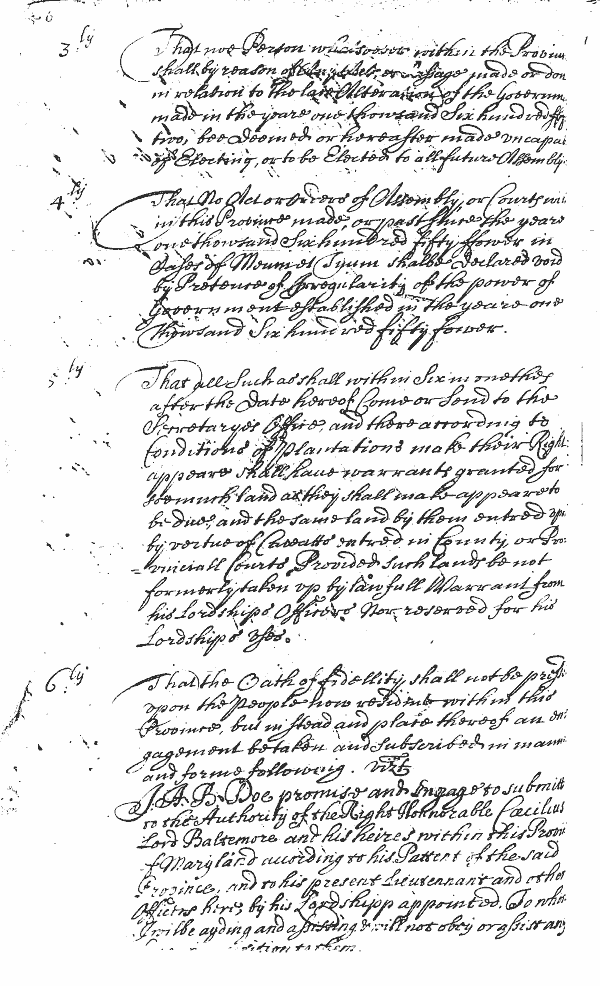 3ly That noe Person whatsoever within the Provin
shall by reason of any Act, or passage made or don
in relation to the late Alteration of the Governm
made in the yeare one thowsand Six hundred fifty
two, bee deemed or hereafter made uncapa
of Electing, or to be Elected to all future Assembly
4ly That No Act or orders of Assembly, or Courts
in this Province made, or past since the yeare
one thowsand Six hundred fifty ffower in
Cases of Meum et Tuum shalbe declared void
by Pretence of Irregularity of the power of
Government established in the yeare one
thowsand Six hundred fifty fower.
5ly That all such as shall within Six monethes
after the date hereof Come or Send to the
Secretaryes Office, and there according to
Conditions of Plantations make their Right
appeare shall have warrants granted for
soe much land as they shall make appeare to
be due, and the same land by them entred vpo
by vertue of Caveatts entred in County, or Pro
vinciall Courts Provided such lands be not
formerly taken vp by lawfull Warrant from
his Lordships Officers Nor reserved for his
Lordships vse.
6ly That the Oath of fidellity shall not be pres
vpon the People now resident within this
Province, but in stead and place thereof an en
gagement be taken and Subscribed in mann
and forme following. vizt
I. A. B. Doe promise and Engage to submitt
to the Authority of the Right Honnorable Cæcilius
Lord Baltemore and his heires within this Provi
of Maryland according to his Pattent of the said
Province, and to his present Lieutennant and other
Officers here by his Lordshipp appointed. To whom
I wilbe ayding and assisting & will not obey or assist any
sition to them.